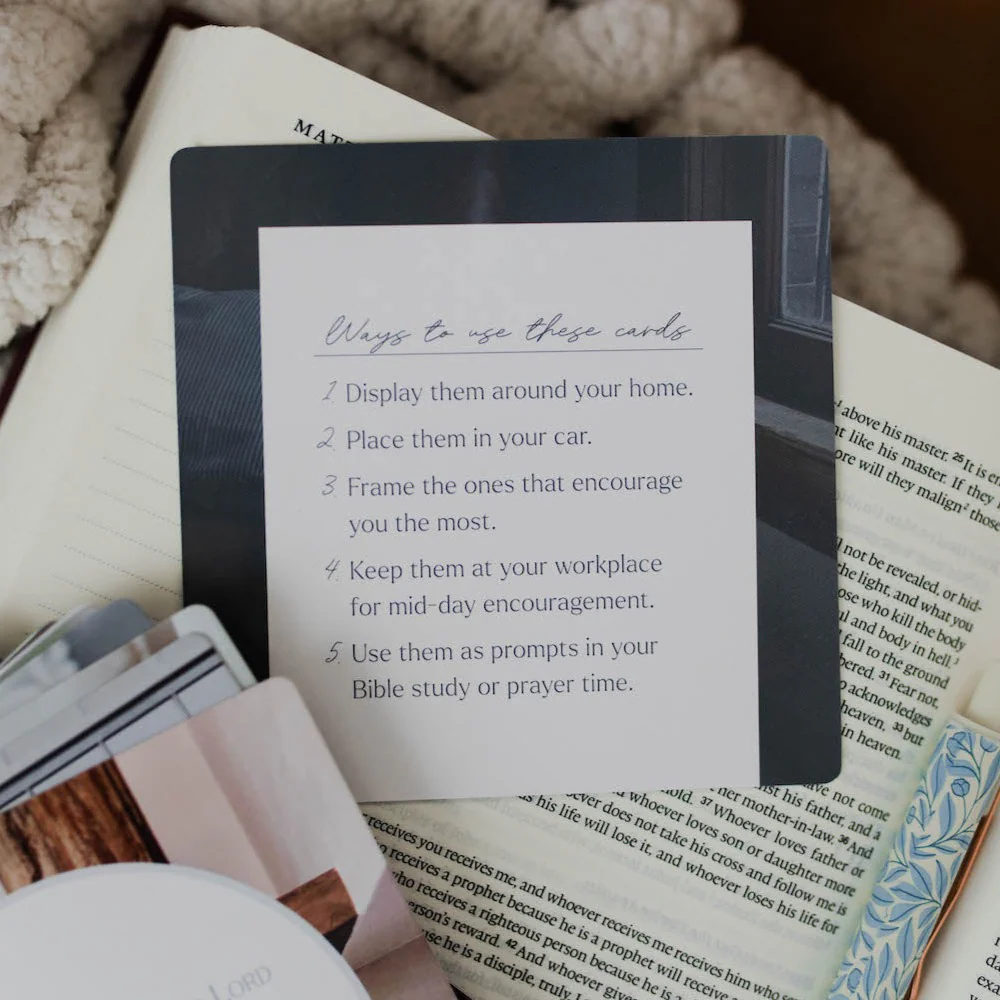 MAT
Ways to use these cards
1. Display them around your home.
2. Place them in your car.
3. Frame the ones that encourage
you the most.
4. Keep them at your workplace
for mid-day encouragement.
5. Use them as prompts in your
Bible study or prayer time.
above his master. 25 It is
like his master. If they
will they malign² those
not be revealed, or hid-
the light, and what you
who kill the body
and body in hell.
fall to the ground
31 Fear not,
acknowledges
heaven, 33 but
in heaven.
not come
his father, and a
her mother-in-law. 36 And
37 Whoever loves father or
and whoever loves son or daughter more
does not take his cross and follow me is
his life will lose it, and whoever loses his life for
receives you receives me, and whoever receives me receives him who
receives a prophet because he is a prophet will receive
who receives a righteous person because he is a
person's reward. 42 And whoever
he is a disciple, truly,
LORD